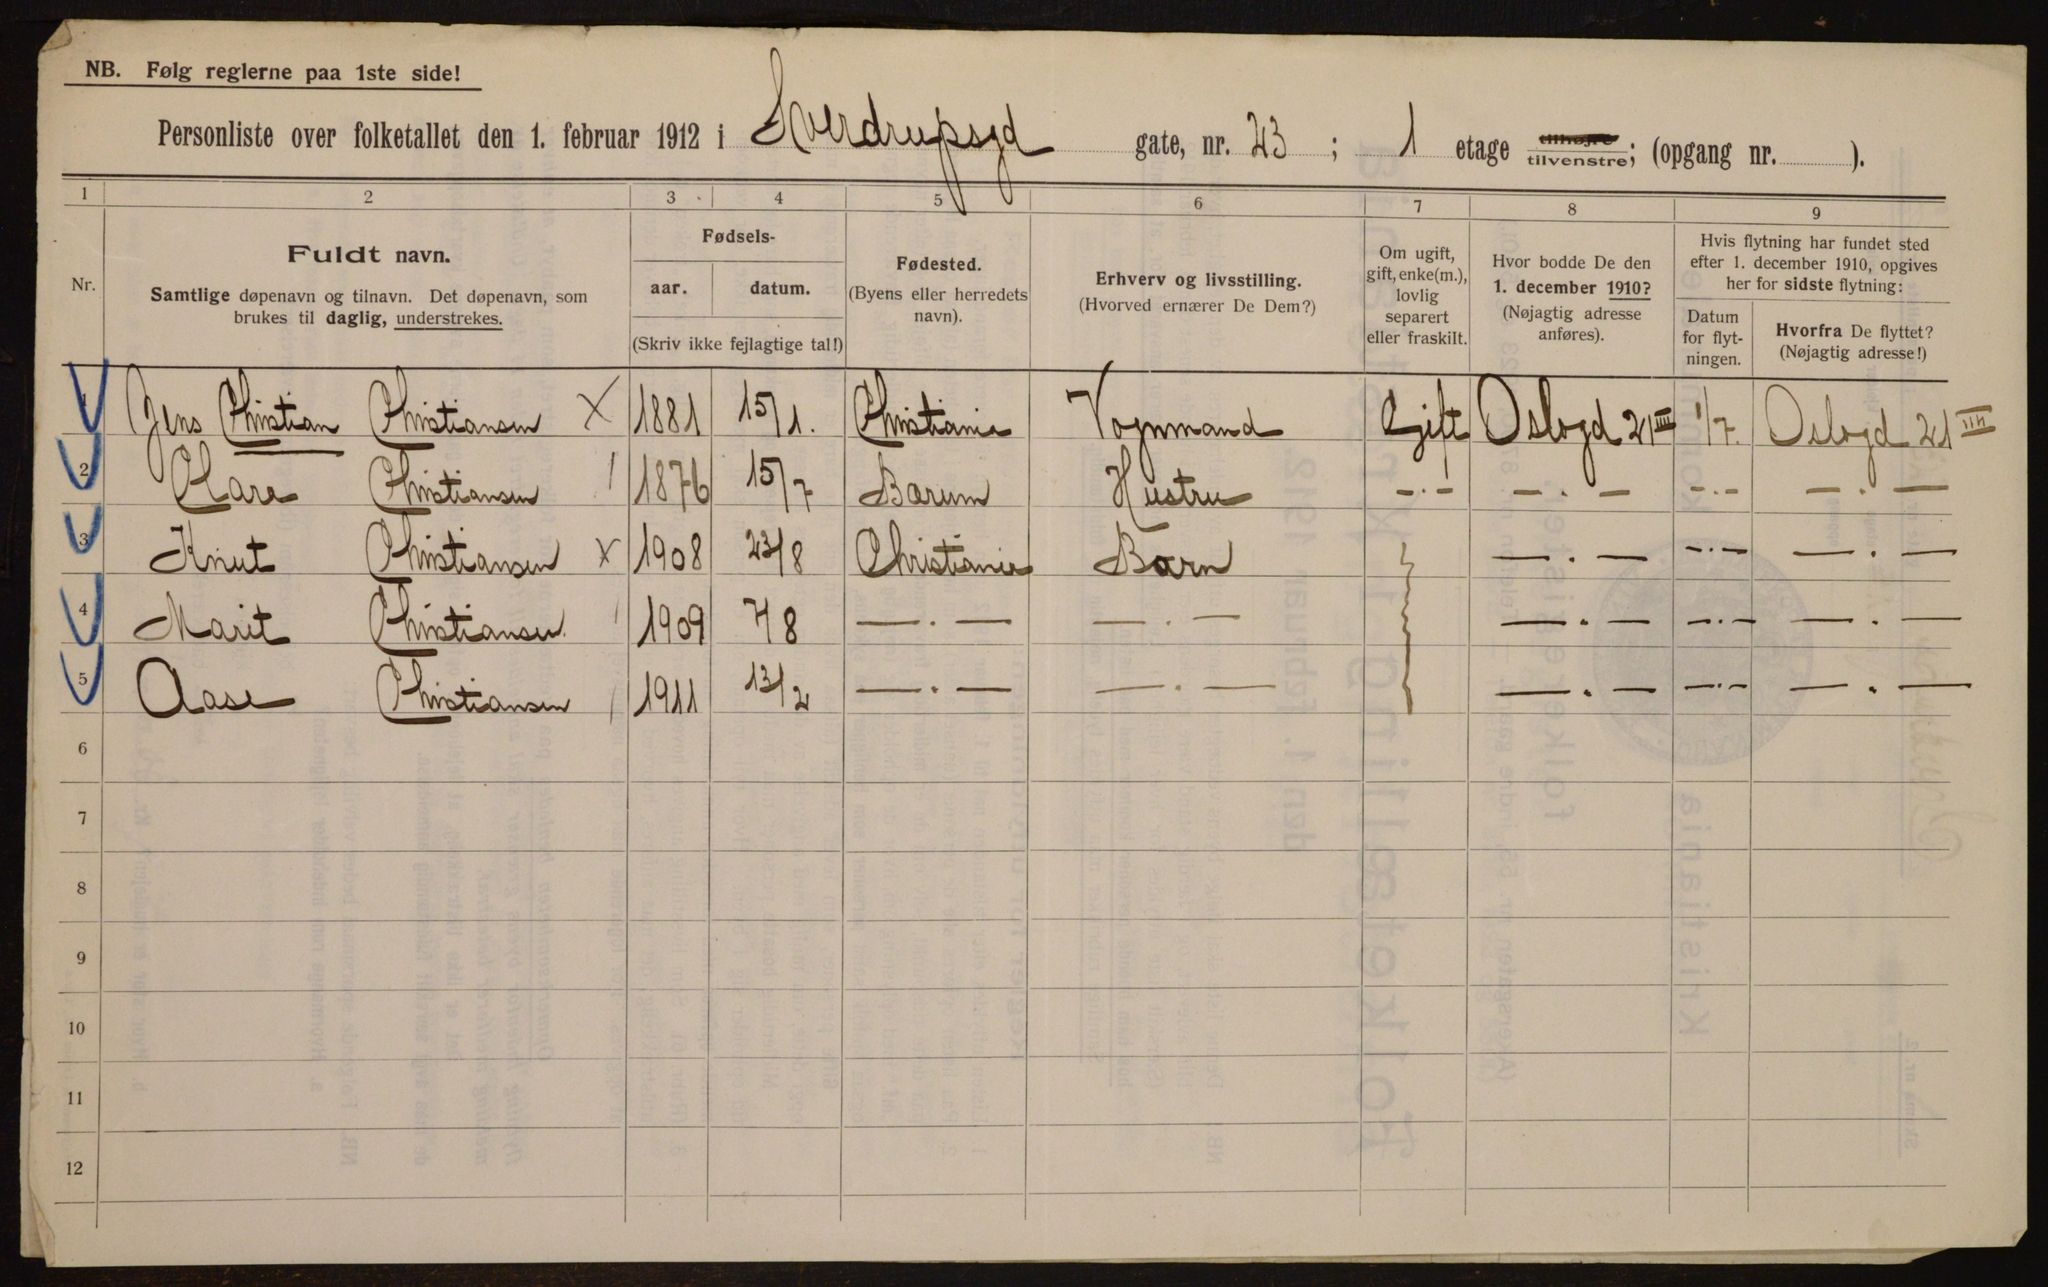 NB. Følg reglerne paa 1ste side!
Personliste over folketallet den 1. februar 1912 i Sverdrupsgd gate, nr. 23 ; 1 etage tilhøjre tilvenstre; (opgang nr. ).
1 2 3 4 5 6 7 8 9
Nr.
Fuldt navn.
Samtlige døpenavn og tilnavn. Det døpenavn, som
brukes til daglig, understrekes.
Fødsels-
aar. datum.
(Skriv ikke fejlagtige tal!)
Fødested.
(Byens eller herredets
navn).
Erhverv og livsstilling.
(Hvorved ernærer De Dem?)
Om ugift,
gift, enke(m.),
lovlig
separert
eller fraskilt.
Hvor bodde De den
1. december 1910?
(Nøjagtig adresse
anføres).
Hvis flytning har fundet sted
efter 1. december 1910, opgives
her for sidste flytning:
Datum
for flyt-
ningen.
Hvorfra De flyttet?
(Nøjagtig adresse!)
1 Jens Christian Christiansen X 1881 15/1. Christiania Vognmand Gift Oslogd 21 III 1/7. Oslogd 21 III
2 Clara Christiansen / 1876 15/7 Bærum Hustru —.— —.— —.— —.—
3 Knut Christiansen X 1908 23/8 Christiania Barn —.— —.— —.—
4 Marit Christiansen / 1909 7/8 —.— —.— —.— —.— —.—
5 Aase Christiansen / 1911 13/2 —.— —.— —.— —.— —.—
6
7
8
9
10
11
12